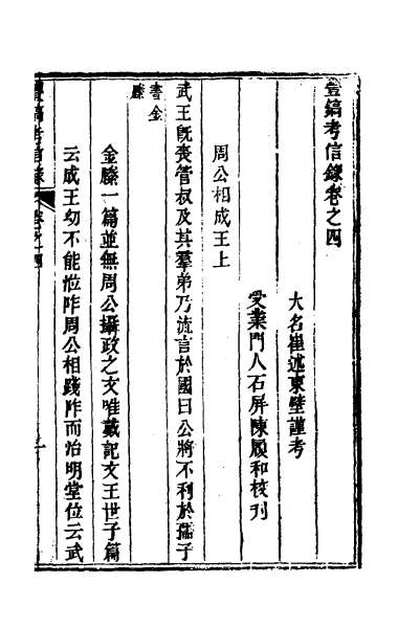 豐鎬考信錄卷之四
大名崔述東壁謹考
受業門人石屏陳履和校刋
周公相成王上
武王旣喪管叔及其羣弟乃流言於國曰公將不利於孺子
書金
縢
金縢一篇並無周公攝政之文唯戴記文王世子篇
云成王幼不能涖阼周公相踐阼而治明堂位云武
豐鎬考信錄 卷之四 一